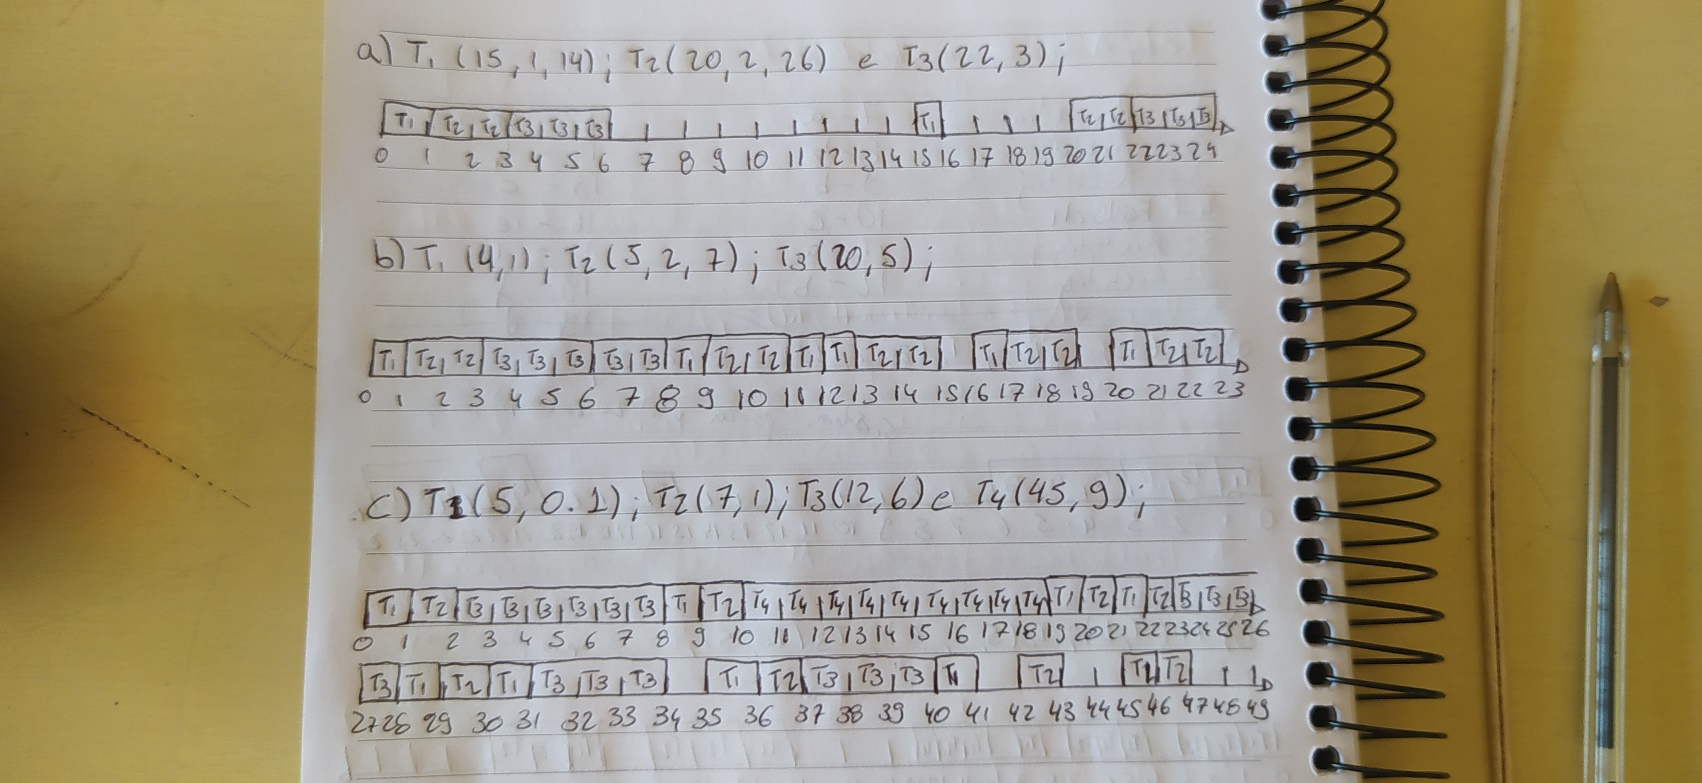 a) T1 (15, 1, 14); T2(20, 2, 26) e T3(22, 3);
T1 T2 T2 T3 T3 T3 T1 T2 T2 T3 T3 T3
0 1 2 3 4 5 6 7 8 9 10 11 12 13 14 15 16 17 18 19 20 21 22 23 24
b) T1 (4,1); T2(5, 2, 7); T3(20, 5);
T1 T2 T2 T3 T3 T3 T3 T3 T1 T2 T2 T1 T1 T2 T2 T1 T2 T2 T1 T2 T2
0 1 2 3 4 5 6 7 8 9 10 11 12 13 14 15 16 17 18 19 20 21 22 23
c) T1(5, 0.1); T2(7, 1); T3(12, 6) e T4(45, 9);
T1 T2 T3 T3 T3 T3 T3 T3 T1 T2 T4 T4 T4 T4 T4 T4 T4 T4 T4 T1 T2 T1 T2 T3 T3 T3
0 1 2 3 4 5 6 7 8 9 10 11 12 13 14 15 16 17 18 19 20 21 22 23 24 25 26
T3 T1 T2 T1 T3 T3 T3 T1 T2 T3 T3 T3 T1 T2 T1 T2
27 28 29 30 31 32 33 34 35 36 37 38 39 40 41 42 43 44 45 46 47 48 49